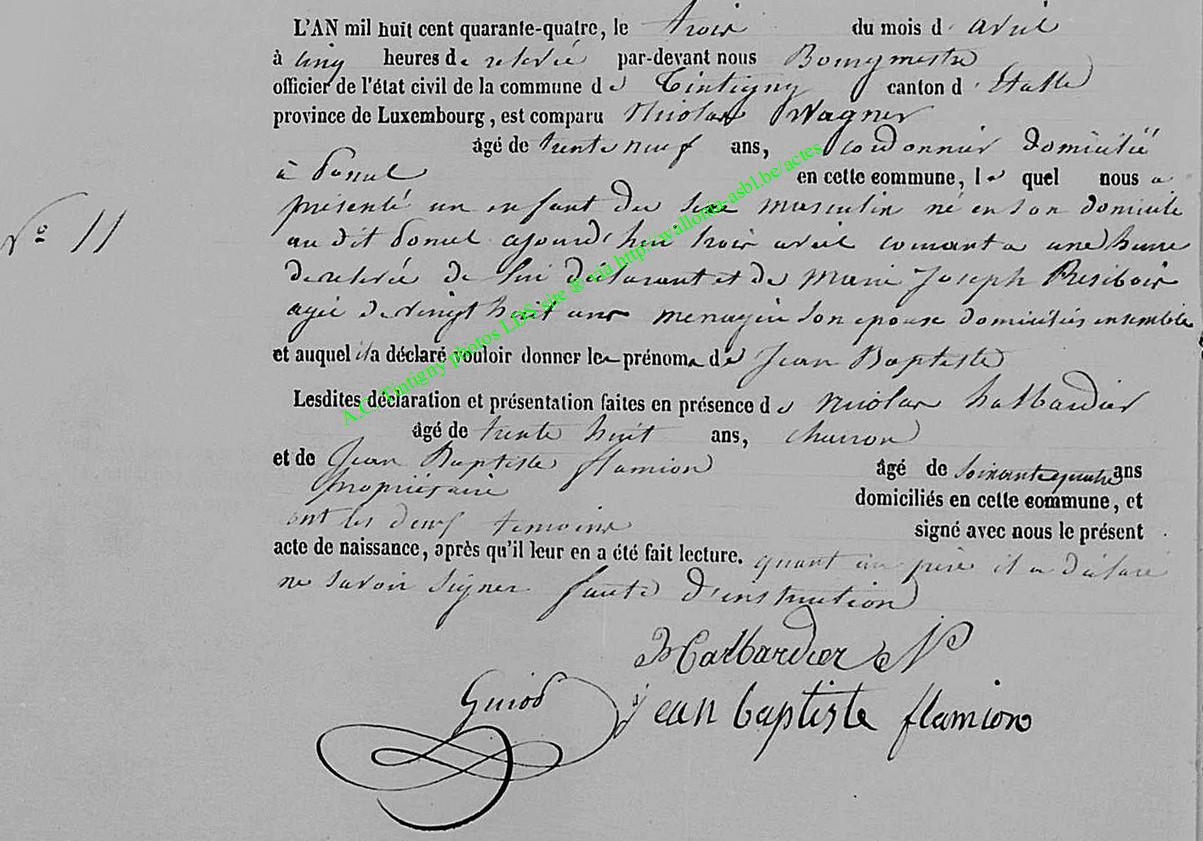 L'AN mil huit cent quarante-quatre, le trois du mois d avril
à cinq heures de relevée par-devant nous Bourgmestre
officier de l'état civil de la commune de Tintigny canton d'Etalle
province de Luxembourg, est comparu Nicolas Wagner
âgé de trente neuf ans, cordonnier domicilié
à ansart en cette commune, le quel nous a
N° 11
présenté un enfant du sexe masculin né en son domicile
au dit ajourd'hui trois avril courant a une heure
de relevée de lui déclarant et de Marie Joseph Resibois
agée de vingt huit ans menagère son epouse domiciliés ensemble
et auquel il a déclaré vouloir donner les prénoms de Jean Baptiste
Lesdites déclaration et présentation faites en présence de Nicolas halbardier
âgé de trente huit ans, charron
et de Jean Baptiste flamion âgé de soixante quatre ans
propriétaire domiciliés en cette commune, et
ont les deux temoins signé avec nous le présent
acte de naissance, après qu'il leur en a été fait lecture. quant au père il a déclaré
ne savoir signer faute d'instruction
halbardier N
Guiod jean baptiste flamion
A.C. Tintigny photos LDS site & via http://wallonia-asbl.be/actes